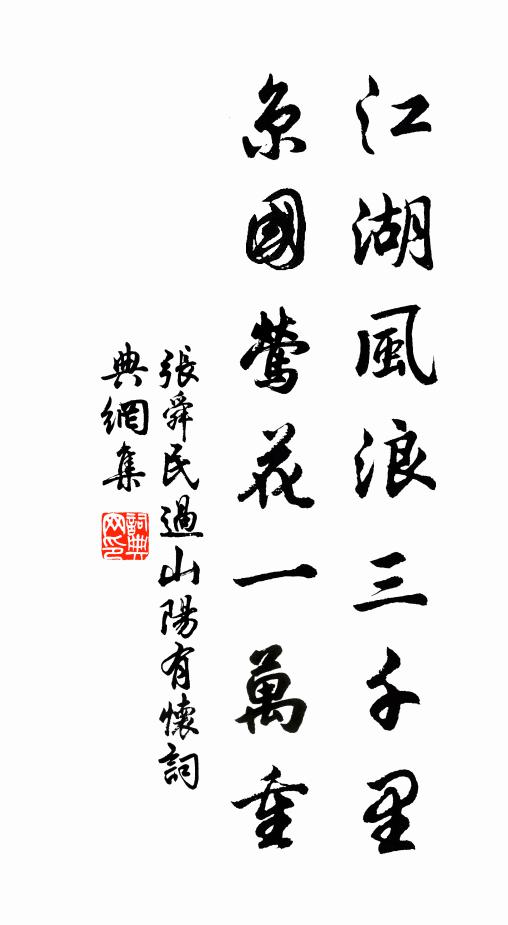 江湖風浪三千里
京國鶯花一萬重
張舜民過山陽有懷詞
典網集
詞典
网印